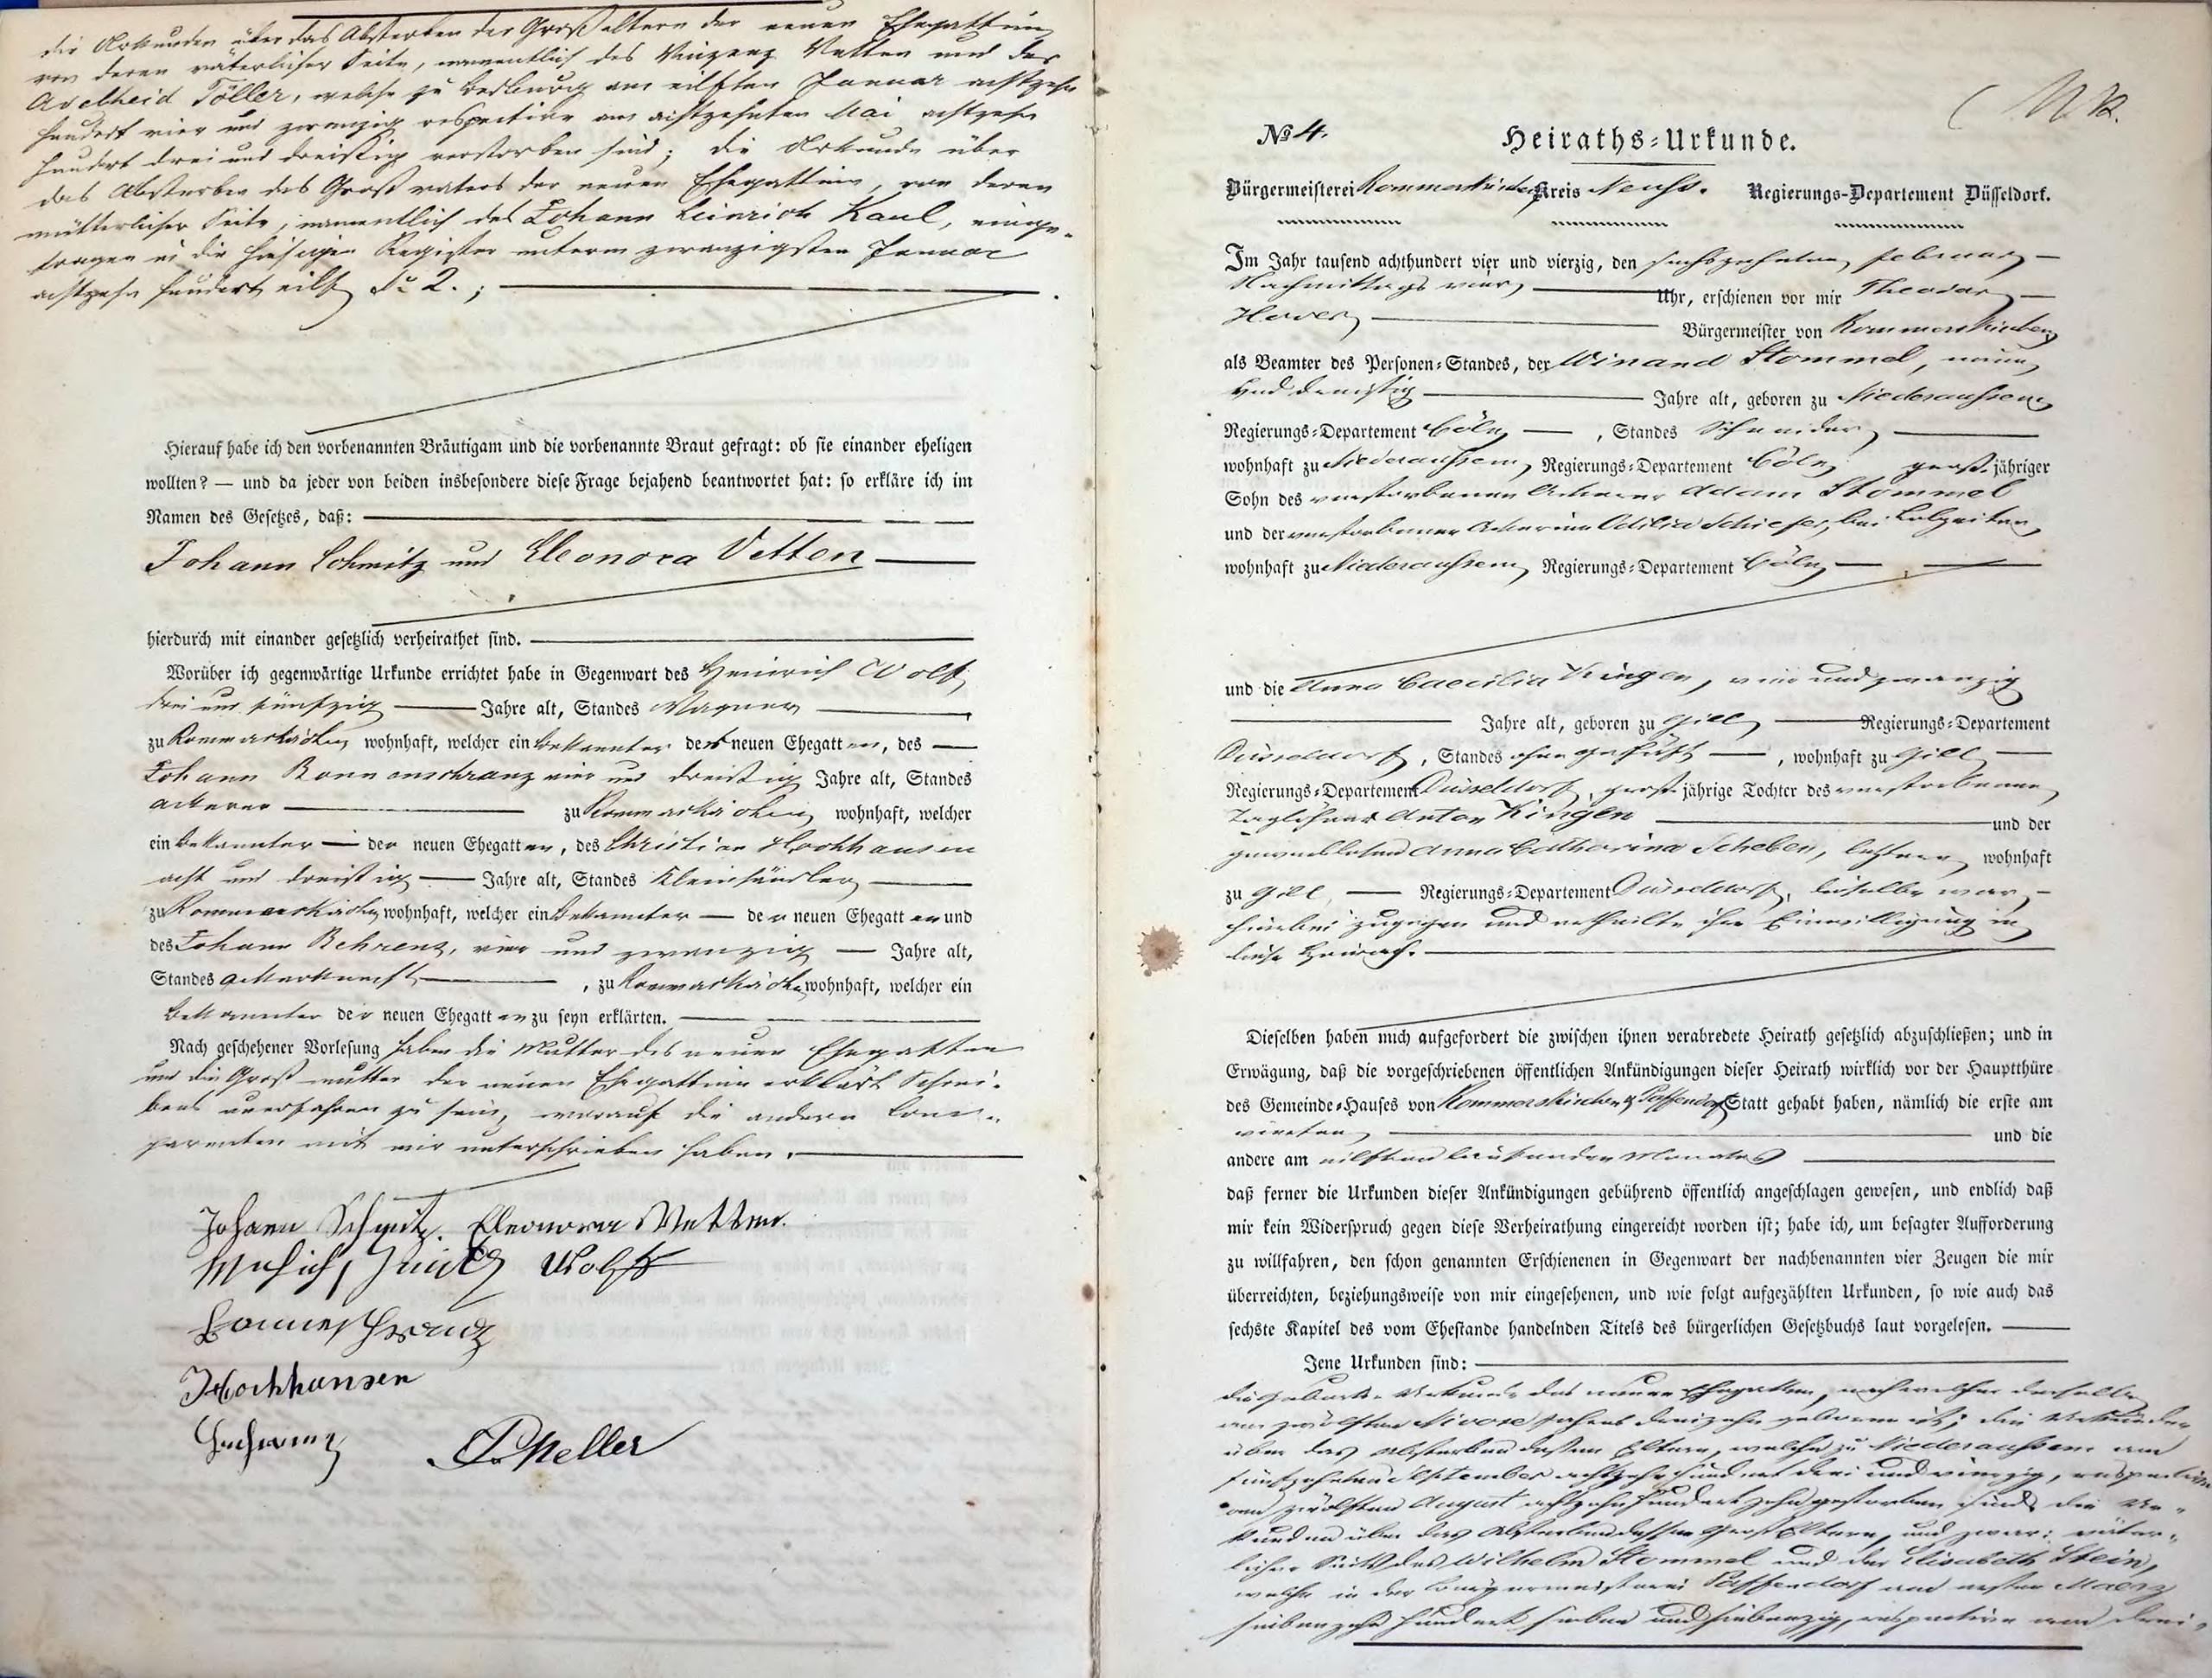 die Urkunden über das Absterben der Großeltern der neuen Ehegattin,
von deren väterlicher Seite, namentlich des Vinzenz Vetten und der
Adelheid Töller, welche zu Bedburg am eilften Januar achtzehn
hundert vier und zwanzig respective am achtzehnten Mai achtzehn
hundert drei und dreißig verstorben sind; die Urkunde über
das Absterben des Großvaters der neuen Ehegattin, von deren
mütterlicher Seite, namentlich des Johann Heinrich Kaul, einge-
tragen in die hiesigen Register unterm zwanzigsten Januar
achtzehn hundert eilf No 2.;
Hierauf habe ich den vorbenannten Bräutigam und die vorbenannte Braut gefragt: ob sie einander eheligen
wollten? — und da jeder von beiden insbesondere diese Frage bejahend beantwortet hat: so erkläre ich im
Namen des Gesetzes, daß:
Johann Schmitz und Eleonora Vetten
hierdurch mit einander gesetzlich verheirathet sind.
Worüber ich gegenwärtige Urkunde errichtet habe in Gegenwart des Heinrich Wolff,
drei und fünfzig Jahre alt, Standes Wagner
zu Rommerskirchen wohnhaft, welcher ein Bekannter der neuen Ehegatten, des
Johann Bonnenschranz vier und dreißig Jahre alt, Standes
Ackerer zu Rommerskirchen wohnhaft, welcher
ein Bekannter der neuen Ehegatten, des Christian Hochhausen
acht und dreißig Jahre alt, Standes Kleinhändler
zu Rommerskirchen wohnhaft, welcher ein Bekannter der neuen Ehegatten und
des Johann Behrenz, vier und zwanzig Jahre alt,
Standes Ackerknecht, zu Rommerskirchen wohnhaft, welcher ein
Bekannter der neuen Ehegatten zu seyn erklärten.
Nach geschehener Vorlesung haben die Mutter des neuen Ehegatten
und die Großmutter der neuen Ehegattin erklärt Schrei-
bens unerfahren zu sein, worauf die andern Com-
parenten mit mir unterschrieben haben.
Johann Schmitz. Eleonora Vetten.
Wolff
Hochhausen
Heller
No 4. Heiraths-Urkunde.
Bürgermeisterei Rommerskirchen Kreis Neuss. Regierungs-Departement Düsseldorf.
Im Jahr tausend achthundert vier und vierzig, den sechszehnten Februar
Nachmittags vier Uhr, erschienen vor mir Theodor
Hover Bürgermeister von Rommerskirchen
als Beamter des Personen-Standes, der Winand Stommel, neun
und dreißig Jahre alt, geboren zu Niederaussem
Regierungs-Departement Cöln, Standes Schneider
wohnhaft zu Niederaussem, Regierungs-Departement Cöln groß jähriger
Sohn des verstorbenen Ackerer Adam Stommel
und der verstorbenen Ackerin Odilia Schiefer, bei Lebzeiten
wohnhaft zu Niederaussem, Regierungs-Departement Cöln
und die Anna Caecilia Kingen, vier und zwanzig
Jahre alt, geboren zu Gill Regierungs-Departement
Düsseldorf, Standes ohne Geschäft, wohnhaft zu Gill
Regierungs-Departement Düsseldorf, groß jährige Tochter des verstorbenen
Taglöhner Anton Kingen und der
gewerblosen Anna Catharina Scheben, letztere wohnhaft
zu Gill, Regierungs-Departement Düsseldorf, dieselbe war
hierbei zugegen und ertheilte ihre Einwilligung in
diese Heirath.
Dieselben haben mich aufgefordert die zwischen ihnen verabredete Heirath gesetzlich abzuschließen; und in
Erwägung, daß die vorgeschriebenen öffentlichen Ankündigungen dieser Heirath wirklich vor der Hauptthüre
des Gemeinde-Hauses von Rommerskirchen & Paffendorf Statt gehabt haben, nämlich die erste am
vierten und die
andere am eilften laufenden Monates
daß ferner die Urkunden dieser Ankündigungen gebührend öffentlich angeschlagen gewesen, und endlich daß
mir kein Widerspruch gegen diese Verheirathung eingereicht worden ist; habe ich, um besagter Aufforderung
zu willfahren, den schon genannten Erschienenen in Gegenwart der nachbenannten vier Zeugen die mir
überreichten, beziehungsweise von mir eingesehenen, und wie folgt aufgezählten Urkunden, so wie auch das
sechste Kapitel des vom Ehestande handelnden Titels des bürgerlichen Gesetzbuchs laut vorgelesen.
Jene Urkunden sind:
die Geburts-Urkunde des neuen Ehegatten, nach welcher derselbe
am zwölften Nivose Jahres dreizehn geboren ist; die Urkunden
über das Absterben dessen Eltern, welche zu Niederaussem am
fünfzehnten September achtzehn hundert drei und vierzig, respective
am zwölften August achtzehn hundert zehn gestorben sind; die Ur-
kunden über das Absterben dessen Großeltern, und zwar: väter-
licher Seits des Wilhelm Stommel und der Elisabeth Stein,
welche in der Bürgermeisterei Paffendorf am ersten Maerz
siebenzehn hundert sieben und siebenzig, respective am drei-